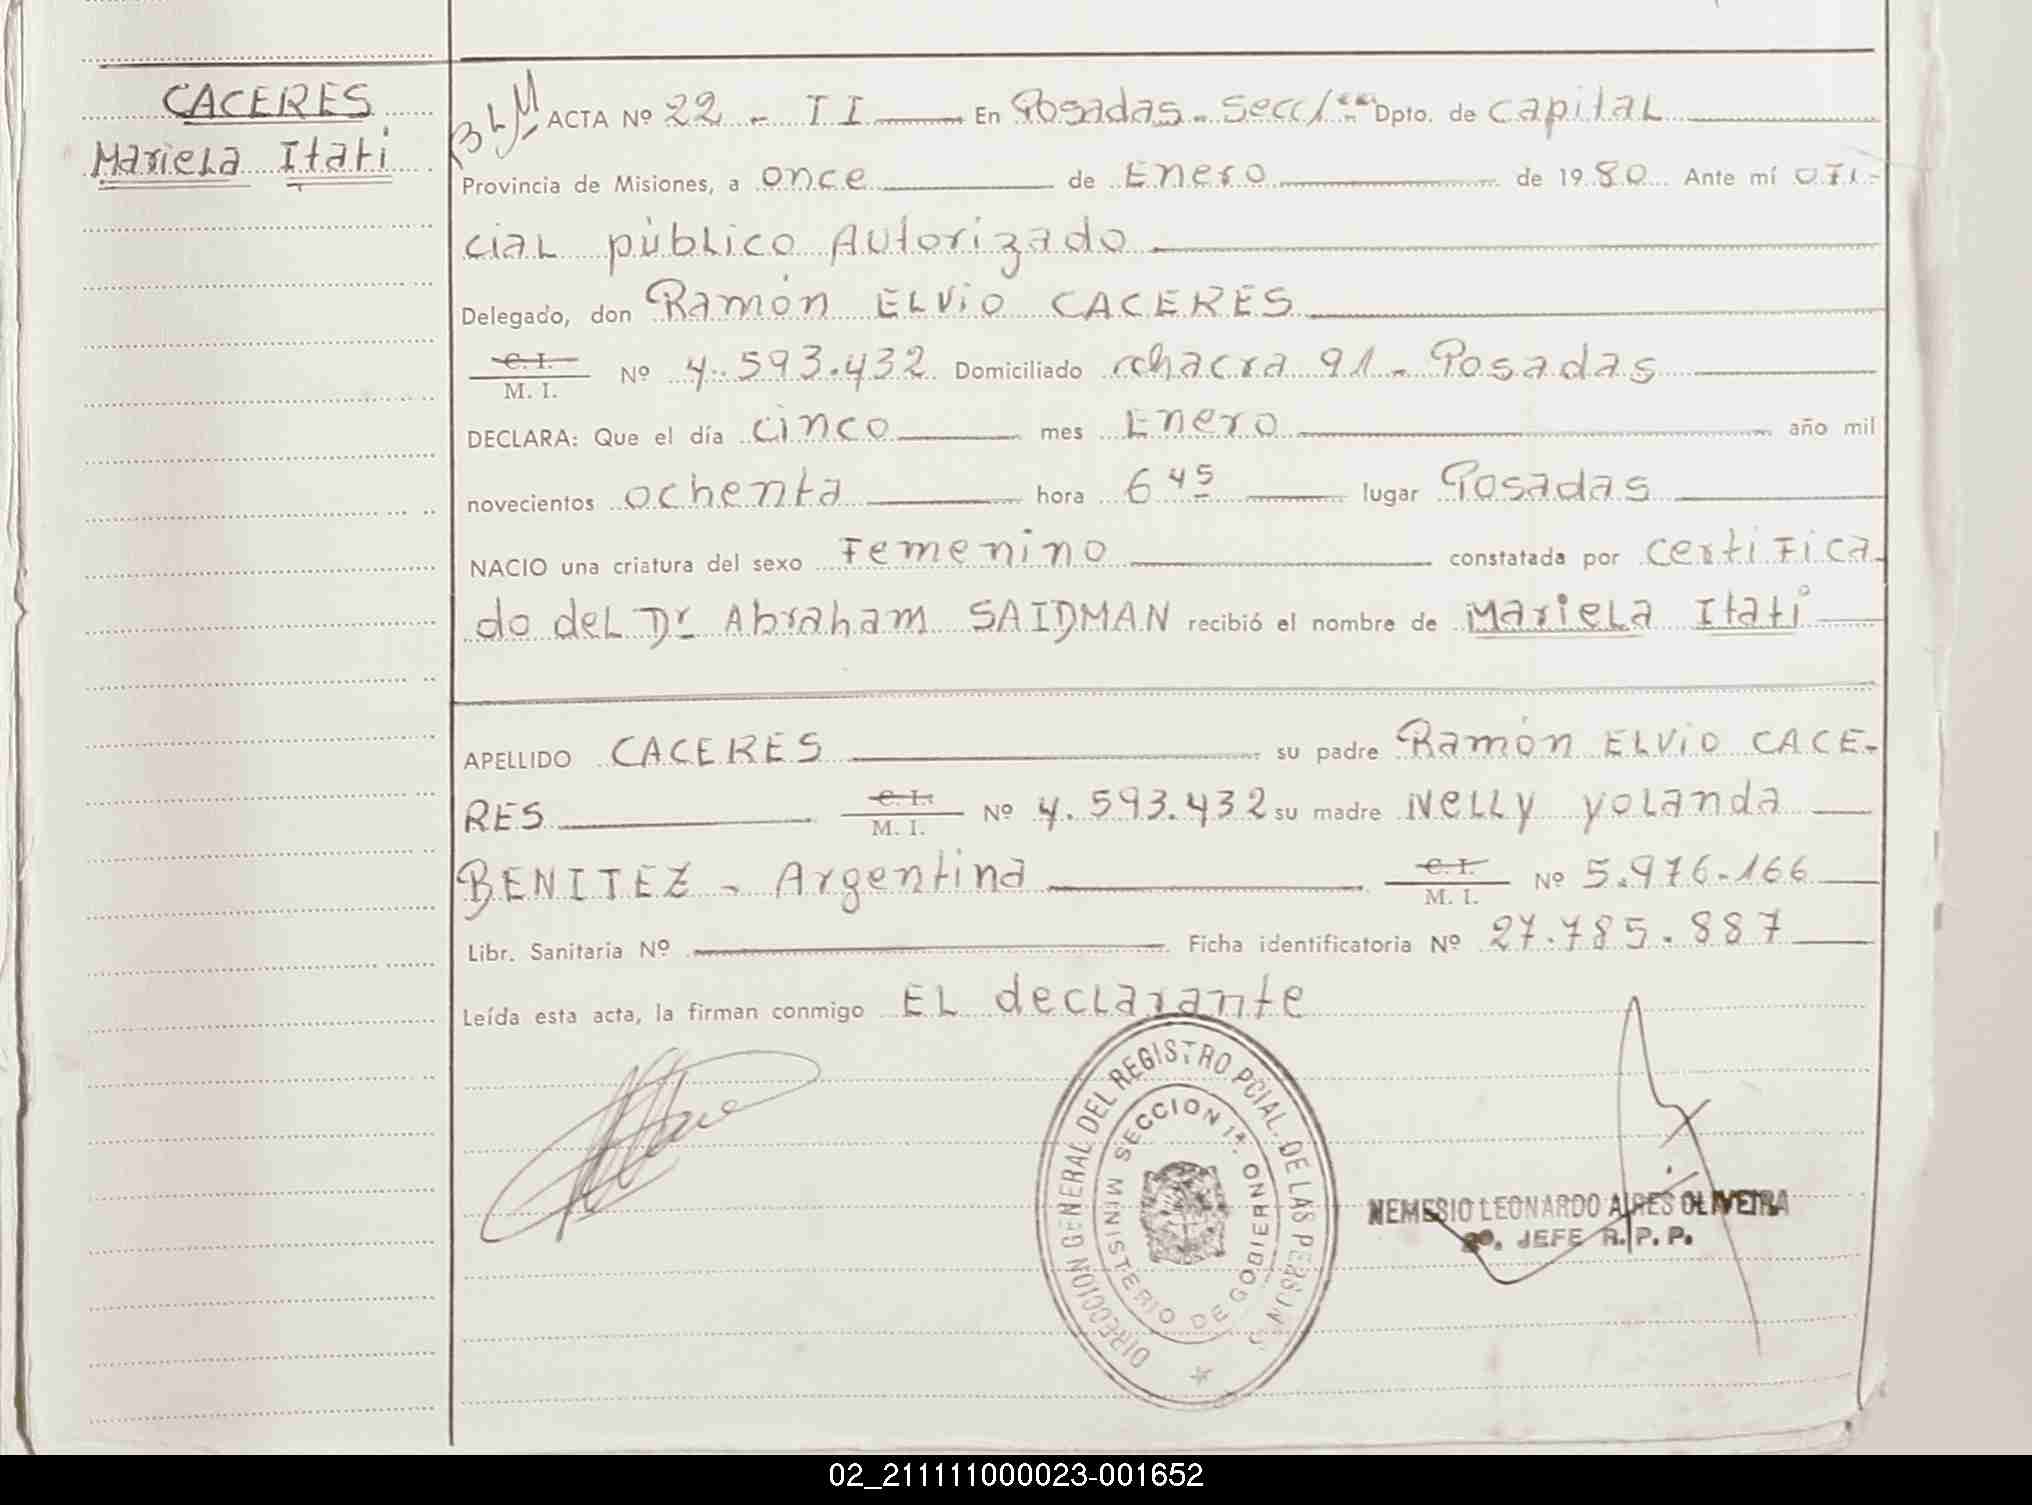 CACERES
Mariela Itati
ACTA Nº 22 - II En Posadas - Secc/ 1ª Dpto. de capital
Provincia de Misiones, a once de Enero de 1980 Ante mí ofi-
cial público Autorizado
Delegado, don Ramón ELVIO CACERES
C. I. / M. I. Nº 4.593.432 Domiciliado chacra 91 - Posadas
DECLARA: Que el día cinco mes Enero año mil
novecientos ochenta hora 6 45 lugar Posadas
NACIO una criatura del sexo Femenino constatada por certifica
do del Dr Abraham SAIDMAN recibió el nombre de Mariela Itatí
APELLIDO CACERES su padre Ramón ELVIO CACE-
RES C. I. / M. I. Nº 4.593.432 su madre Nelly yolanda
BENITEZ - Argentina C. I. / M. I. Nº 5.976.166
Libr. Sanitaria Nº Ficha identificatoria Nº 27.785.887
Leída esta acta, la firman conmigo EL declarante
DIRECCION GENERAL DEL REGISTRO PCIAL. DE LAS PERSONAS
MINISTERIO DE GOBIERNO
SECCION 1ª.
NEMESIO LEONARDO AIRES OLIVEIRA
2º. JEFE R. P. P.
02_211111000023-001652